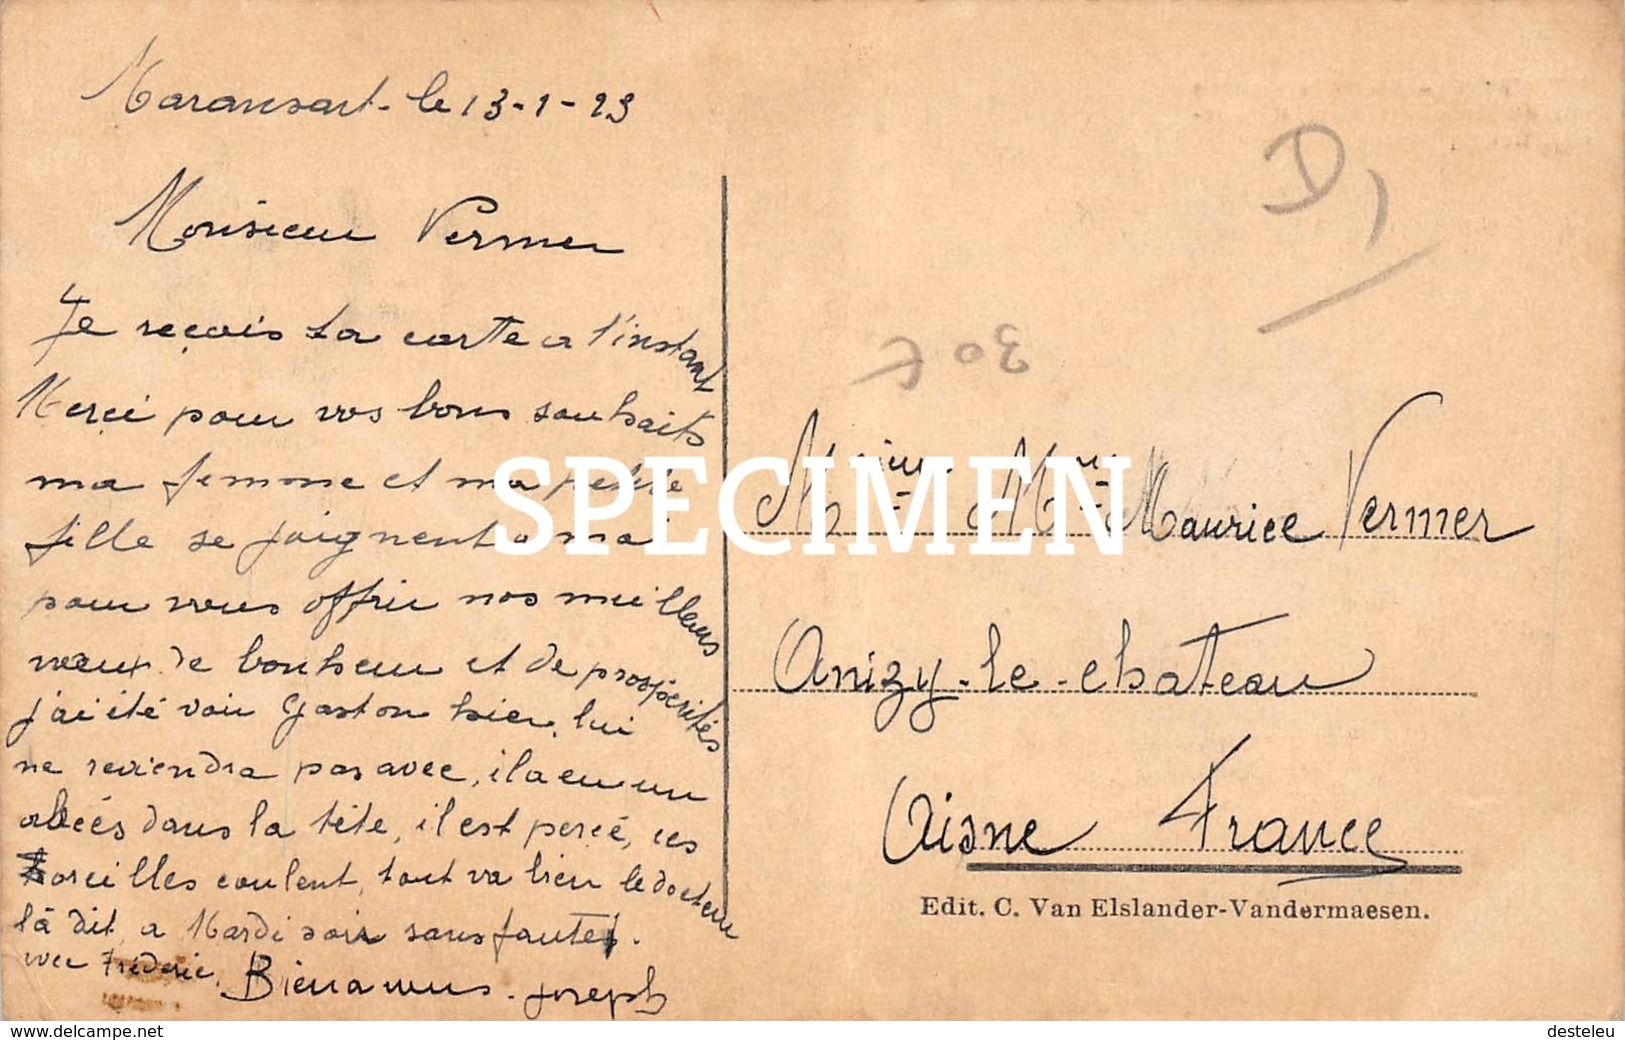 Maransart - le 13-1-23
Monsieur Vermer
Je reçois ta carte a l'instant
Merci pour vos bons souhaits
ma femme et ma petite
fille se joignent a moi
pour vous offrir nos meilleurs
vœux de bonheur et de prospérités
j'ai été voir Gaston hier, lui
ne reviendra pas avec, il a eu un
abcès dans la tête, il est percé, ces
oreilles coulent, tout va bien le docteur
là dit, a Mardi soir sans fautes.
avec Fréderic. Bien a vous. Joseph
D1
30 €
SPECIMEN
Maurice Vermer
Anizy-le-chateau
Aisne France
Edit. C. Van Elslander-Vandermaesen.
www.delcampe.net
desteleu